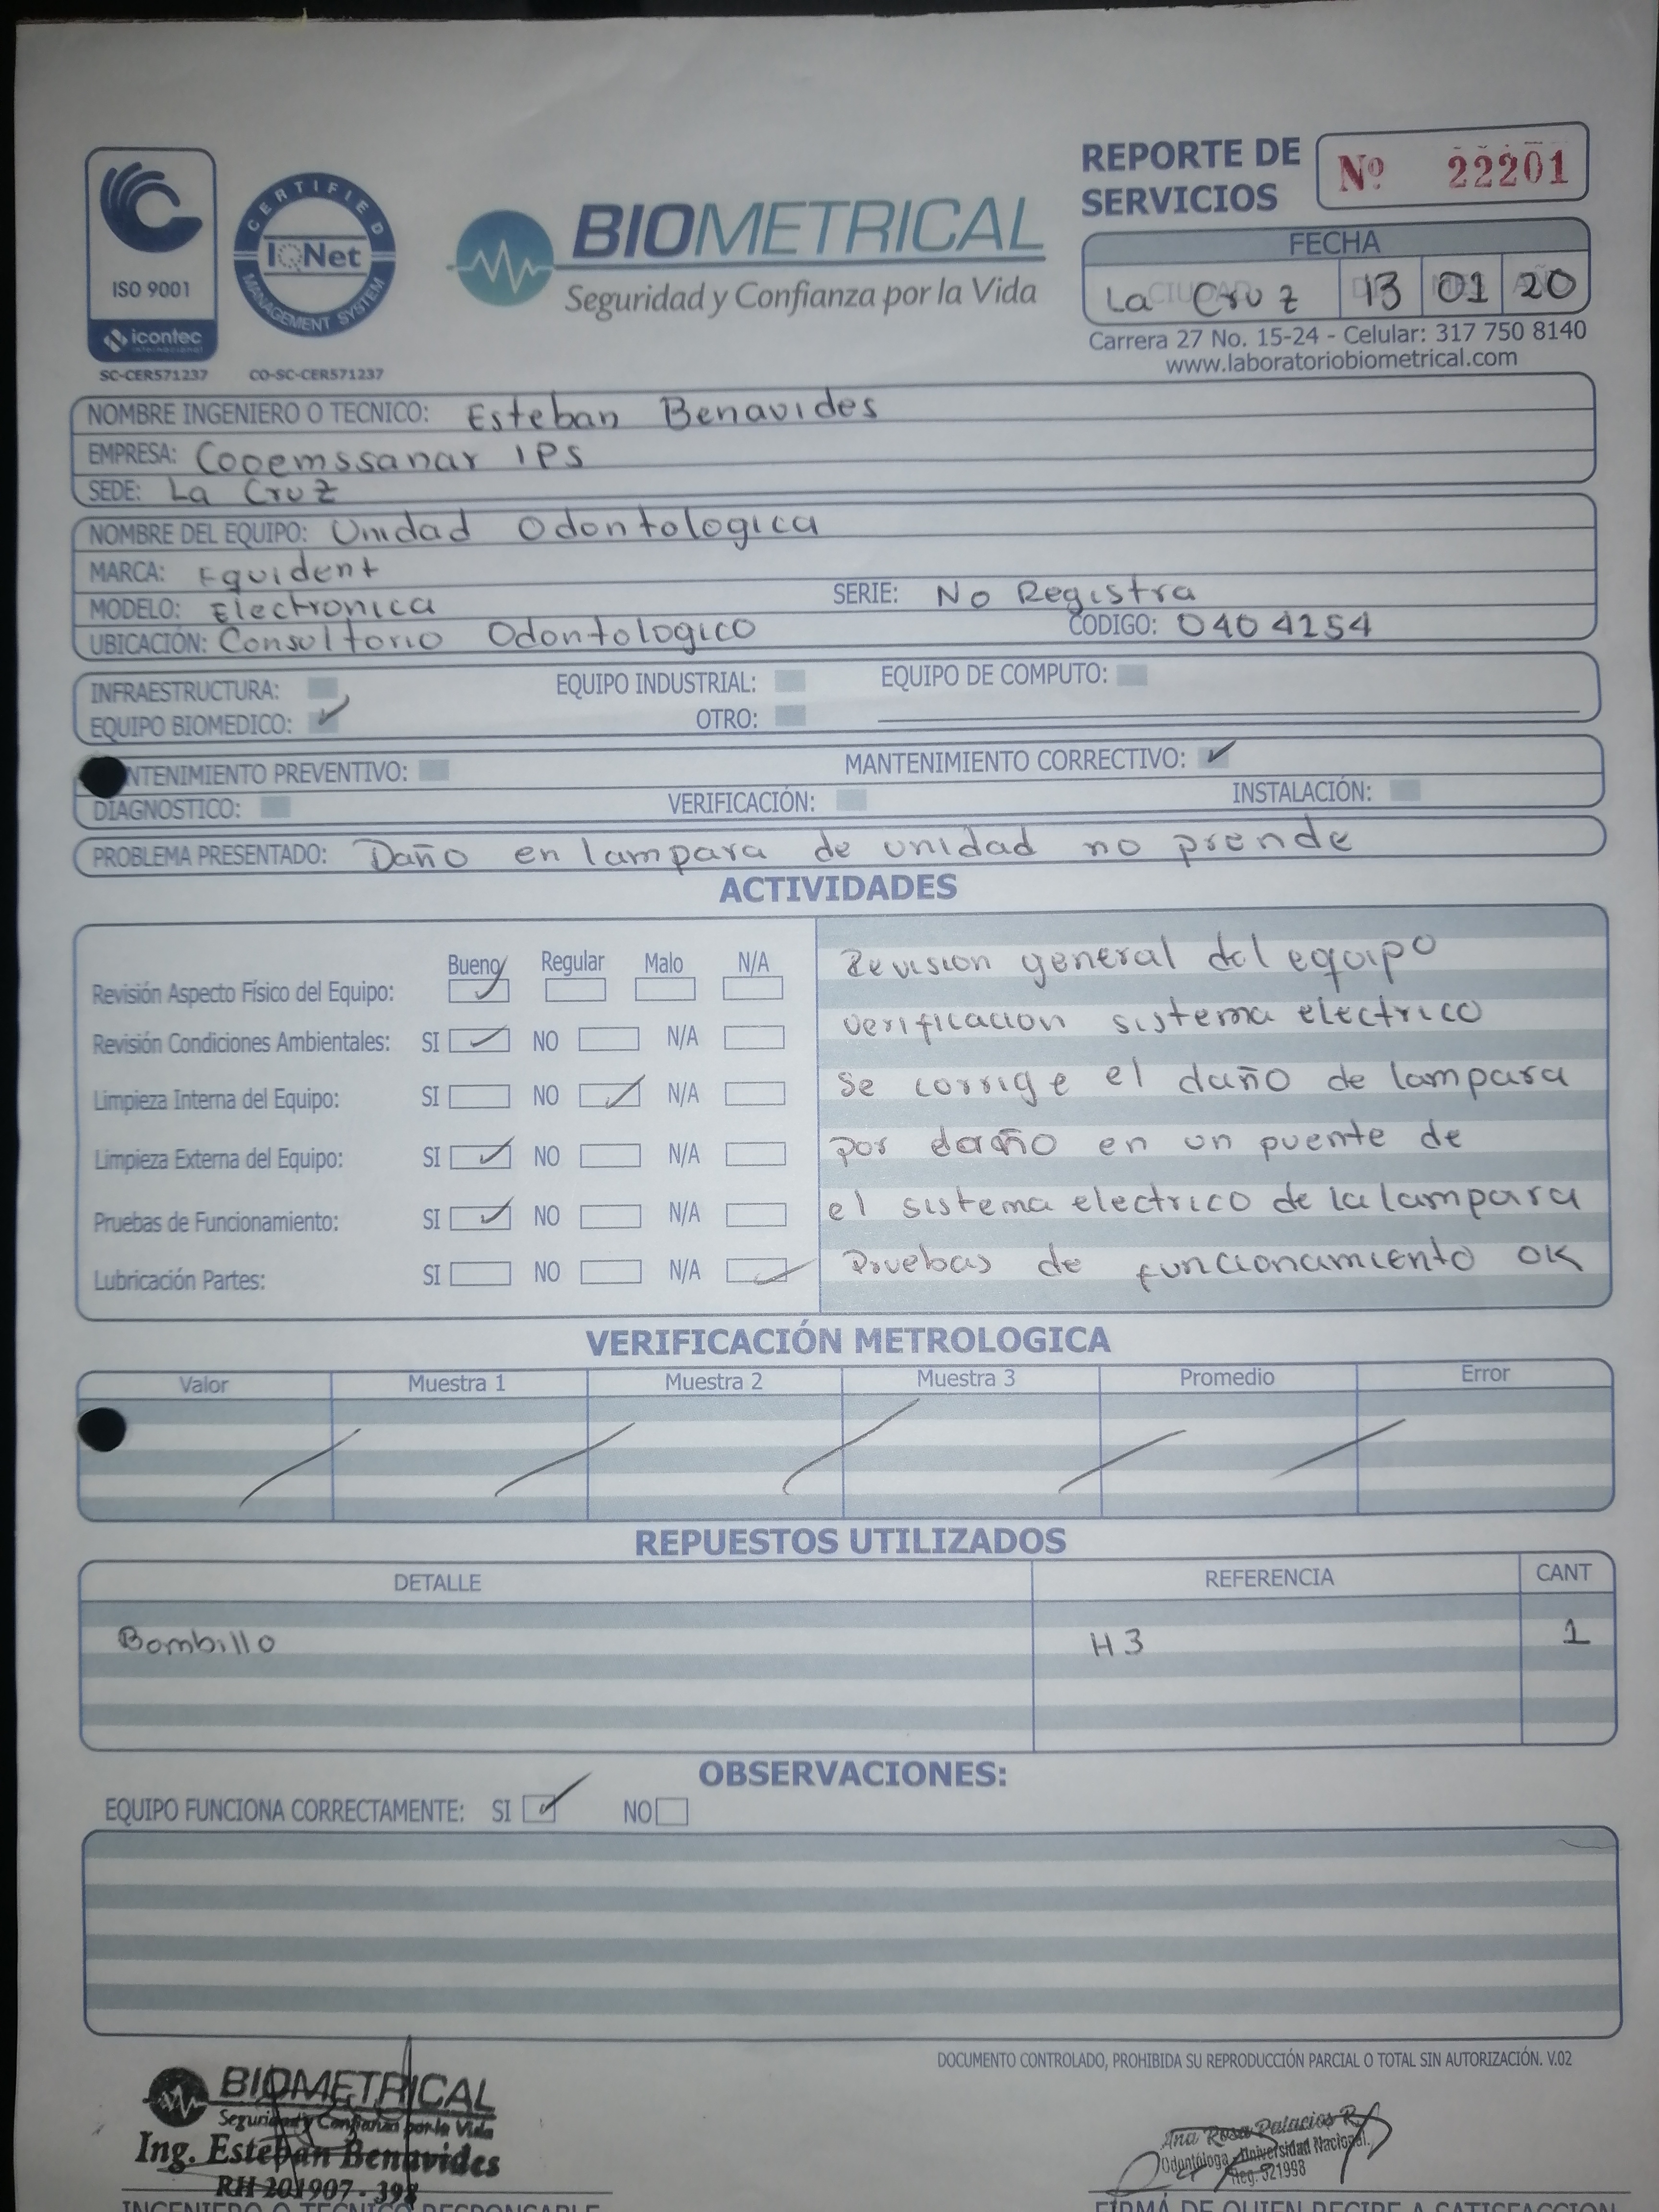 REPORTE DE SERVICIOS
Nº 22201
ISO 9001
icontec
internacional
SC-CER571237
CERTIFIED
IQNet
MANAGEMENT SYSTEM
CO-SC-CER571237
BIOMETRICAL
Seguridad y Confianza por la Vida
FECHA
La Cruz 13 01 20
Carrera 27 No. 15-24 - Celular: 317 750 8140
www.laboratoriobiometrical.com
NOMBRE INGENIERO O TECNICO: Esteban Benavides
EMPRESA: Cooemssanar IPS
SEDE: La Cruz
NOMBRE DEL EQUIPO: Unidad Odontologica
MARCA: Equident
MODELO: Electronica SERIE: No Registra
UBICACIÓN: Consultorio Odontologico CODIGO: 0404254
INFRAESTRUCTURA: EQUIPO INDUSTRIAL: EQUIPO DE COMPUTO:
EQUIPO BIOMEDICO: ✓ OTRO:
NTENIMIENTO PREVENTIVO: MANTENIMIENTO CORRECTIVO: ✓
DIAGNOSTICO: VERIFICACIÓN: INSTALACIÓN:
PROBLEMA PRESENTADO: Daño en lampara de unidad no prende
ACTIVIDADES
Bueno Regular Malo N/A
Revisión Aspecto Físico del Equipo:
Revisión Condiciones Ambientales: SI NO N/A
Limpieza Interna del Equipo: SI NO N/A
Limpieza Externa del Equipo: SI NO N/A
Pruebas de Funcionamiento: SI NO N/A
Lubricación Partes: SI NO N/A
Revision general del equipo
verificacion sistema electrico
Se corrige el daño de lampara
por daño en un puente de
el sistema electrico de la lampara
Pruebas de funcionamiento OK
VERIFICACIÓN METROLOGICA
Valor Muestra 1 Muestra 2 Muestra 3 Promedio Error
REPUESTOS UTILIZADOS
DETALLE REFERENCIA CANT
Bombillo H3 1
OBSERVACIONES:
EQUIPO FUNCIONA CORRECTAMENTE: SI ✓ NO
DOCUMENTO CONTROLADO, PROHIBIDA SU REPRODUCCIÓN PARCIAL O TOTAL SIN AUTORIZACIÓN. V.02
BIOMETRICAL
Seguridad y Confianza por la Vida
Ing. Esteban Benavides
RH 201907 - 398
INGENIERO O TECNICO RESPONSABLE
Ana Rosa Palacios R.
Odontóloga - Universidad Nacional.
Reg. 521998
FIRMA DE QUIEN RECIBE A SATISFACCION